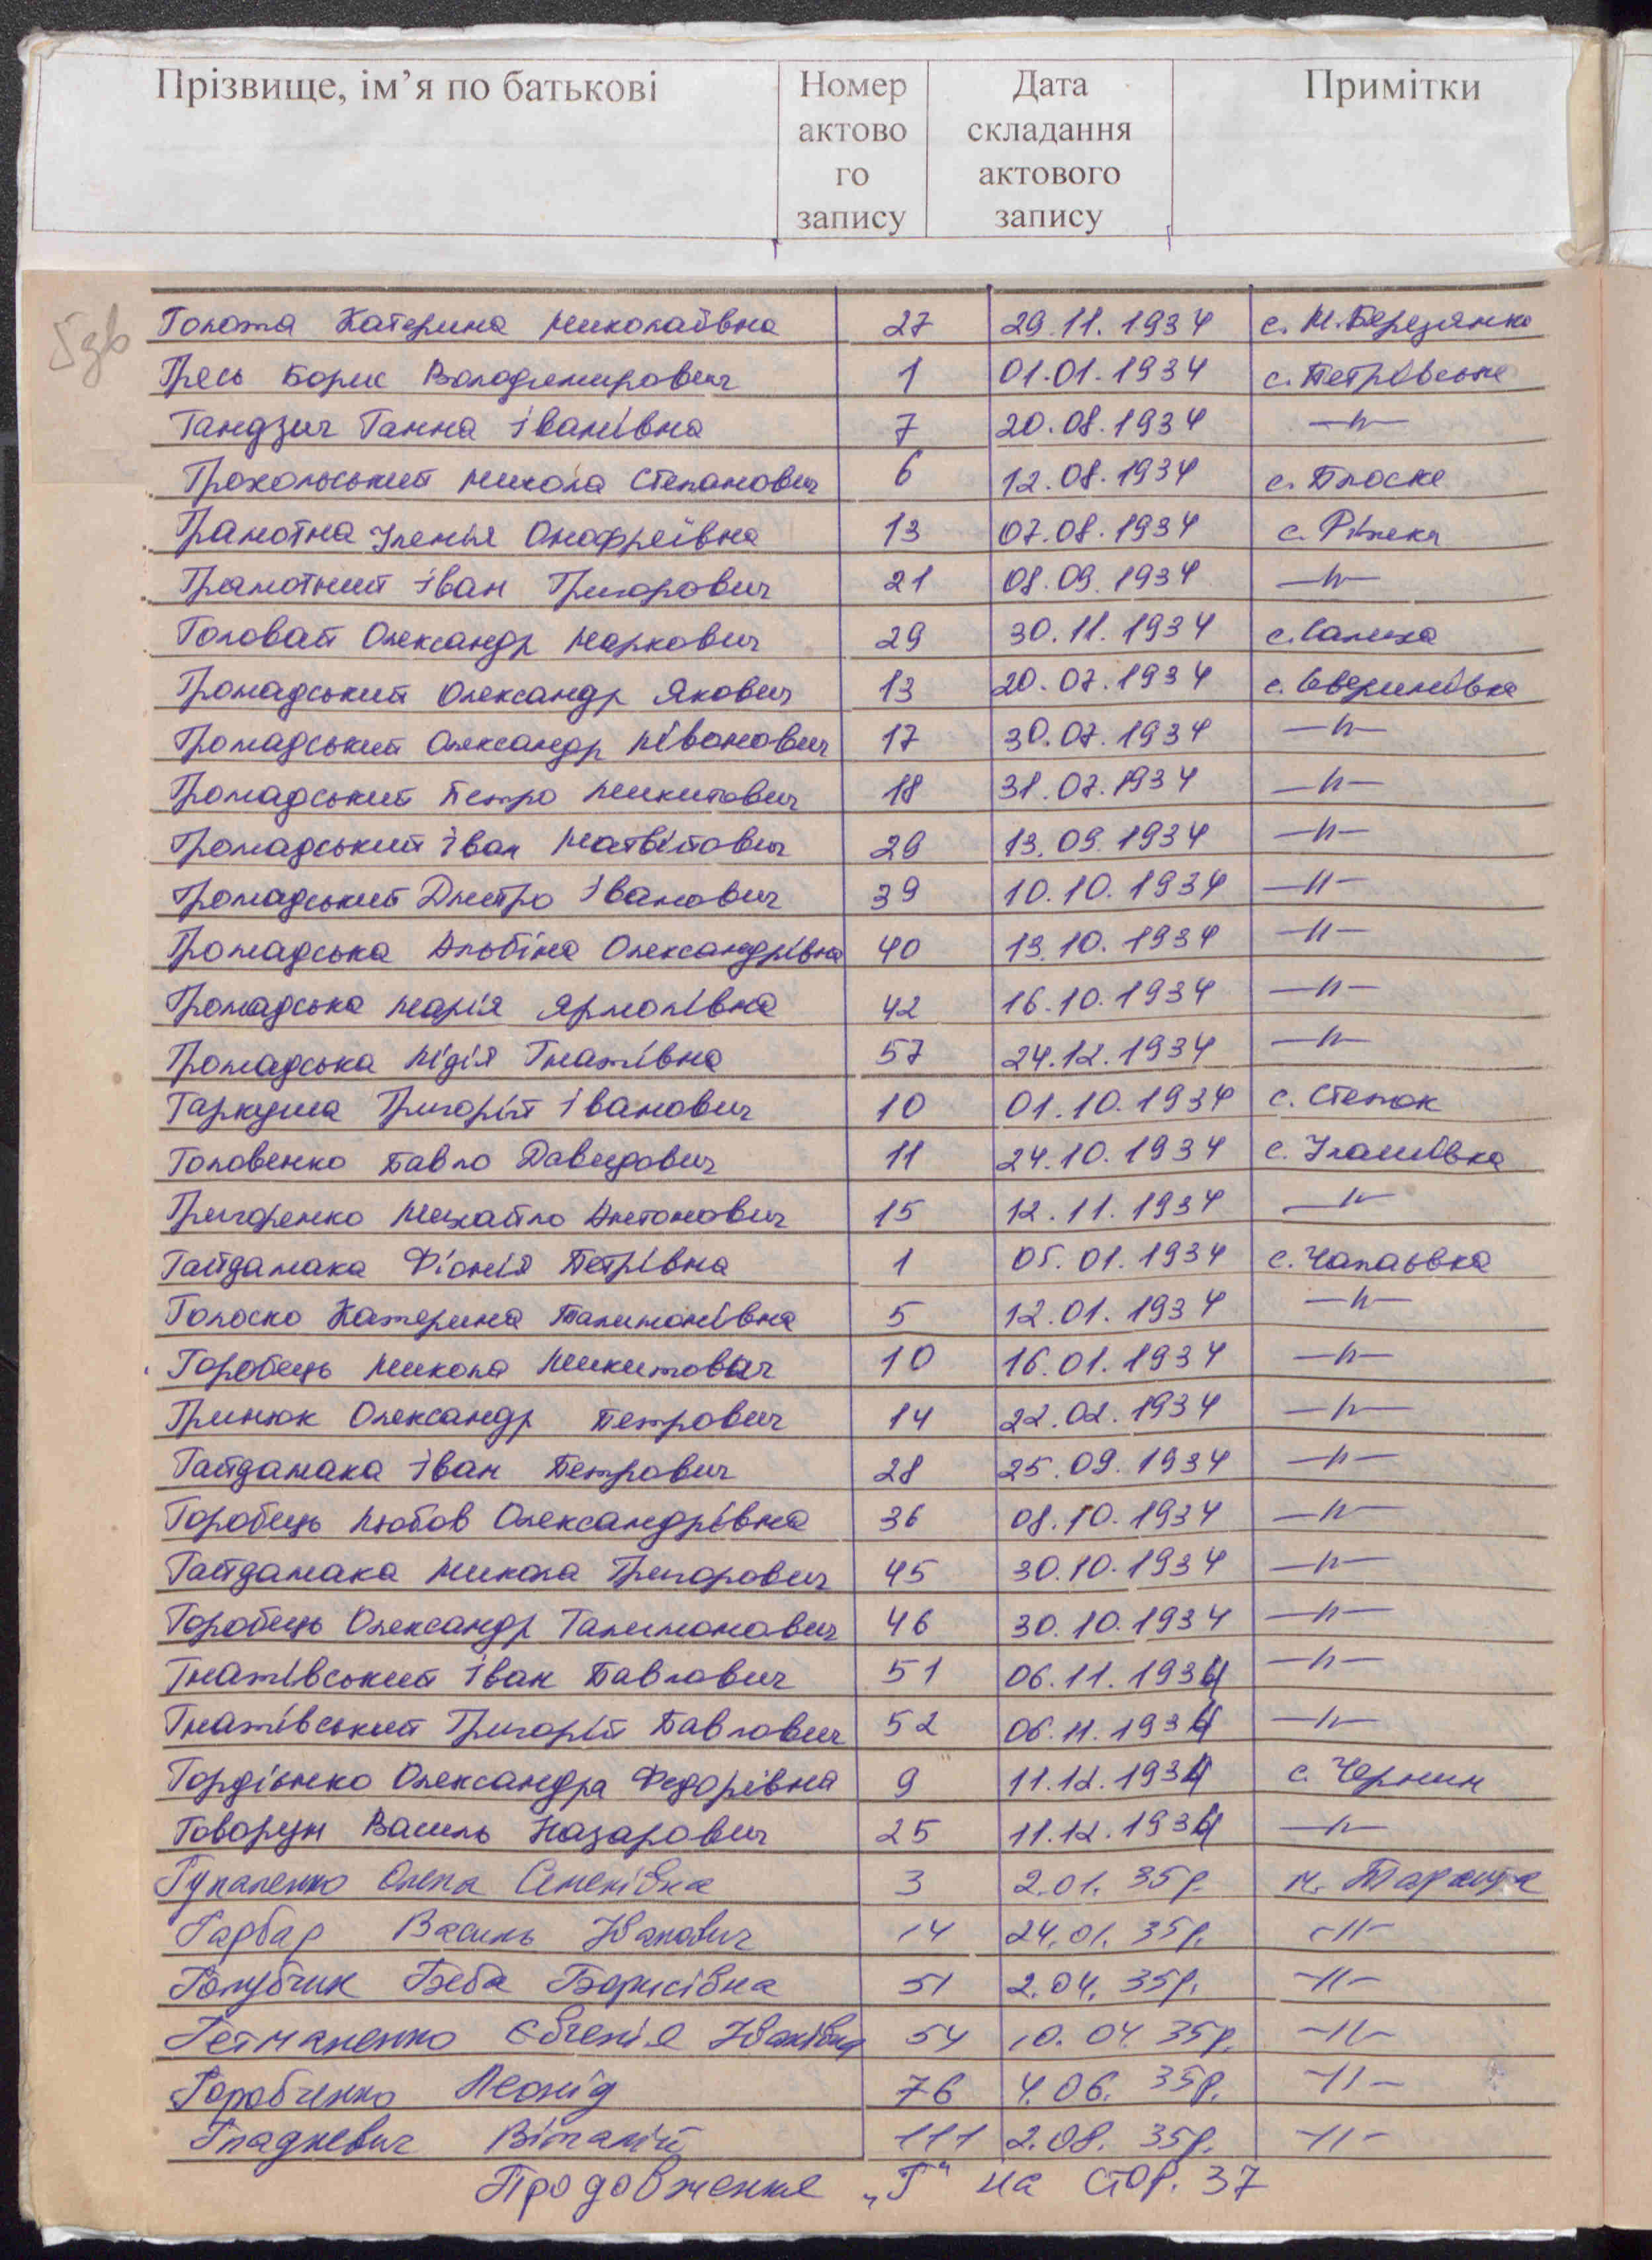 Прізвище, ім’я по батькові Номер актово го запису Дата складання актового запису Примітки
Голота Катерина Миколаївна 27 29.11.1934 с. М.Березянка
Гресь Борис Володимирович 1 01.01.1934 с. Петрівське
Гандзич Ганна Іванівна 7 20.08.1934 —"—
Грохольський Микола Степанович 6 12.08.1934 с. Плоске
Грамотна Уленія Онофреївна 13 07.08.1934 с. Ріжки
Грамотний Іван Григорович 21 08.09.1934 —"—
Головай Олександр Маркович 29 30.11.1934 с. Салиха
Громадський Олександр Якович 13 20.07.1934 с. Северинівка
Громадський Олександр Іванович 17 30.07.1934 —"—
Громадський Петро Микитович 18 31.07.1934 —"—
Громадський Іван Матвійович 29 13.09.1934 —"—
Громадський Дмитро Іванович 39 10.10.1934 —"—
Громадська Альбіна Олександрівна 40 13.10.1934 —"—
Громадська Марія Ярмолівна 42 16.10.1934 —"—
Громадська Лідія Гнатівна 57 24.12.1934 —"—
Гаркуша Григорій Іванович 10 01.10.1934 с. Степок
Головенко Павло Давидович 11 24.10.1934 с. Улашівка
Григоренко Михайло Антонович 15 12.11.1934 —"—
Гайдамака Фіонія Петрівна 1 05.01.1934 с. Чапаєвка
Голоско Катерина Талимонівна 5 12.01.1934 —"—
Горобець Микола Микитович 10 16.01.1934 —"—
Гринюк Олександр Петрович 14 22.02.1934 —"—
Гайдамака Іван Петрович 28 25.09.1934 —"—
Горобець Любов Олександрівна 36 08.10.1934 —"—
Гайдамака Микола Григорович 45 30.10.1934 —"—
Горобець Олександр Талимонович 46 30.10.1934 —"—
Гнатівський Іван Павлович 51 06.11.1934 —"—
Гнатівський Григорій Павлович 52 06.11.1934 —"—
Гордієнко Олександра Федорівна 9 11.12.1934 с. Чернин
Говорун Василь Назарович 25 11.12.1934 —"—
Гупаленко Олена Семенівна 3 2.01.35р. м. Тараща
Гарбар Василь Іванович 14 24.01.35р. —"—
Голубчик Беба Борисівна 51 2.04.35р. —"—
Гетманенко Євгенія Іванівна 54 10.04.35р. —"—
Горобченко Леонід 76 4.06.35р. —"—
Гладкевич Віталій 111 2.08.35р. —"—
Продовження „Г“ на стор. 37